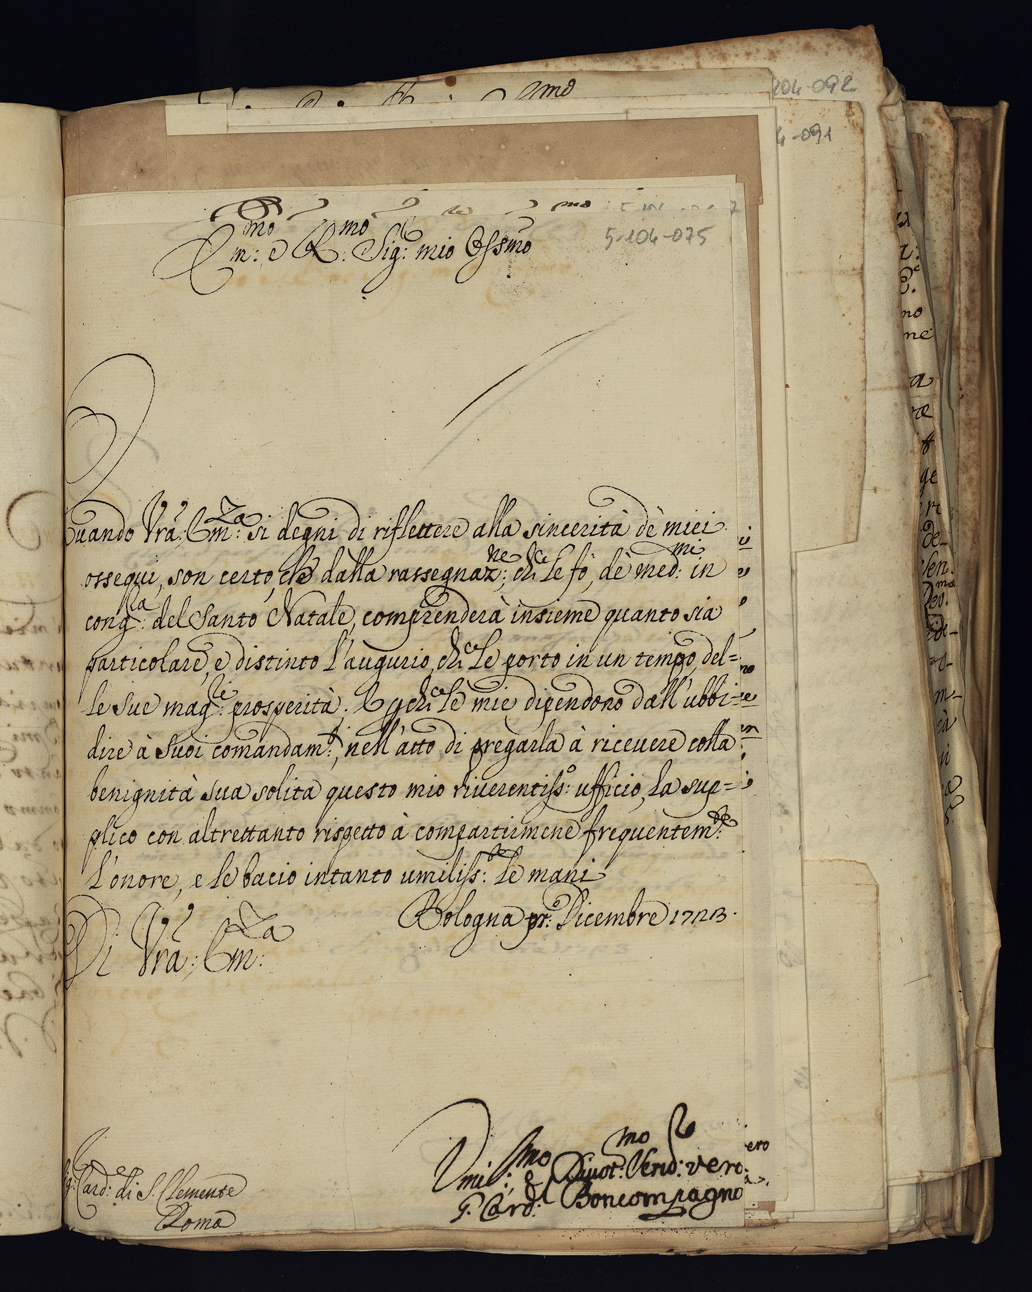 5-104-092
4-091
5-104-075
Em:mo e R:mo Sig:r mio Ossmo
Quando Vra: Em:za si degni di riflettere alla sincerità dè miei
ossequi, son certo, chè dalla rassegnaz:ne, che Le fò, dè med:mi in
cong:ra del Santo Natale, comprenderà insieme quanto sia
particolare, e distinto l'augurio, che Le porto in un tempo del=
le Sue mag:ri prosperità. E perche le mie dipendono dall'ubbi=
dire à Suoi comandam:ti, nell'atto di pregarla à ricevere colla
benignità sua solita questo mio riverentiss:o ufficio, La sup=
plico con altrettanto rispetto à compartirmene frequentem:te
l'onore, e le bacio intanto umiliss:te le mani
Bologna pr:o Dicembre 1723.
Di Vra: Em:za
Umiliss:mo e Divot:mo Serv:re vero
G. Card: Boncompagno
Sig: Card: di S. Clemente
Roma